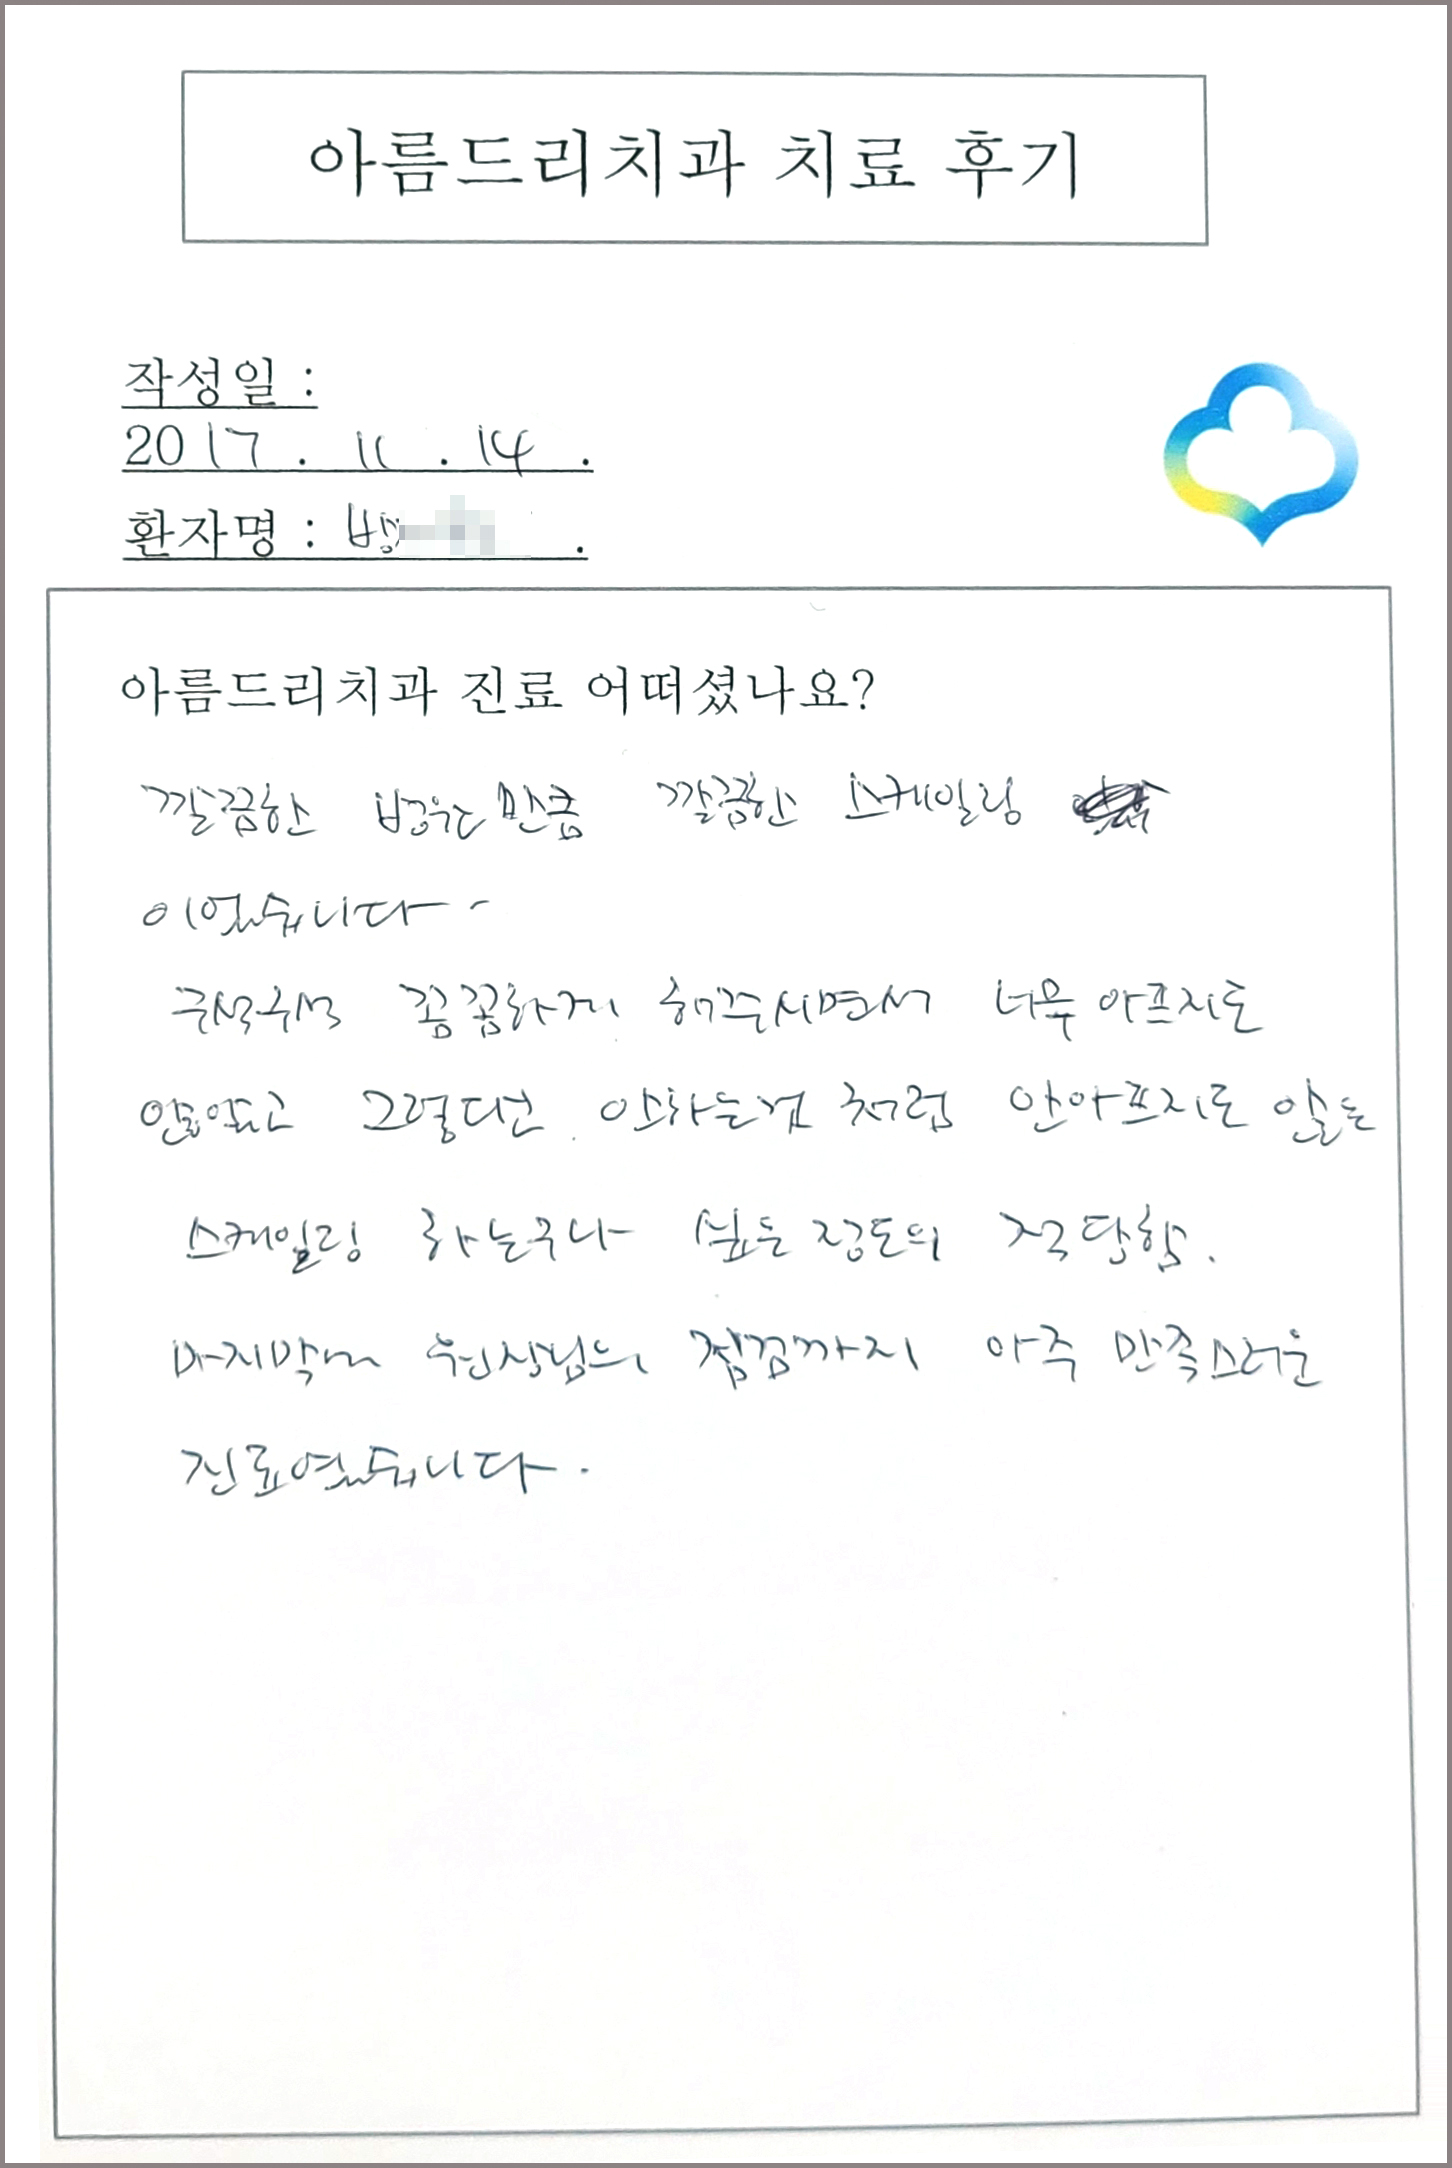 아름드리치과 치료 후기
작성일 :
2017 . 11 . 14 .
환자명 : .
아름드리치과 진료 어떠셨나요?
깔끔한 병원만큼 깔끔한 스케일링
이었습니다.
구석구석 꼼꼼하게 해주시면서 너무 아프지도
않았고 그렇다고 안하는것 처럼 안아프지도 않은
스케일링 하는구나 싶은 정도의 적당함.
마지막에 원장님의 점검까지 아주 만족스러운
진료였습니다.